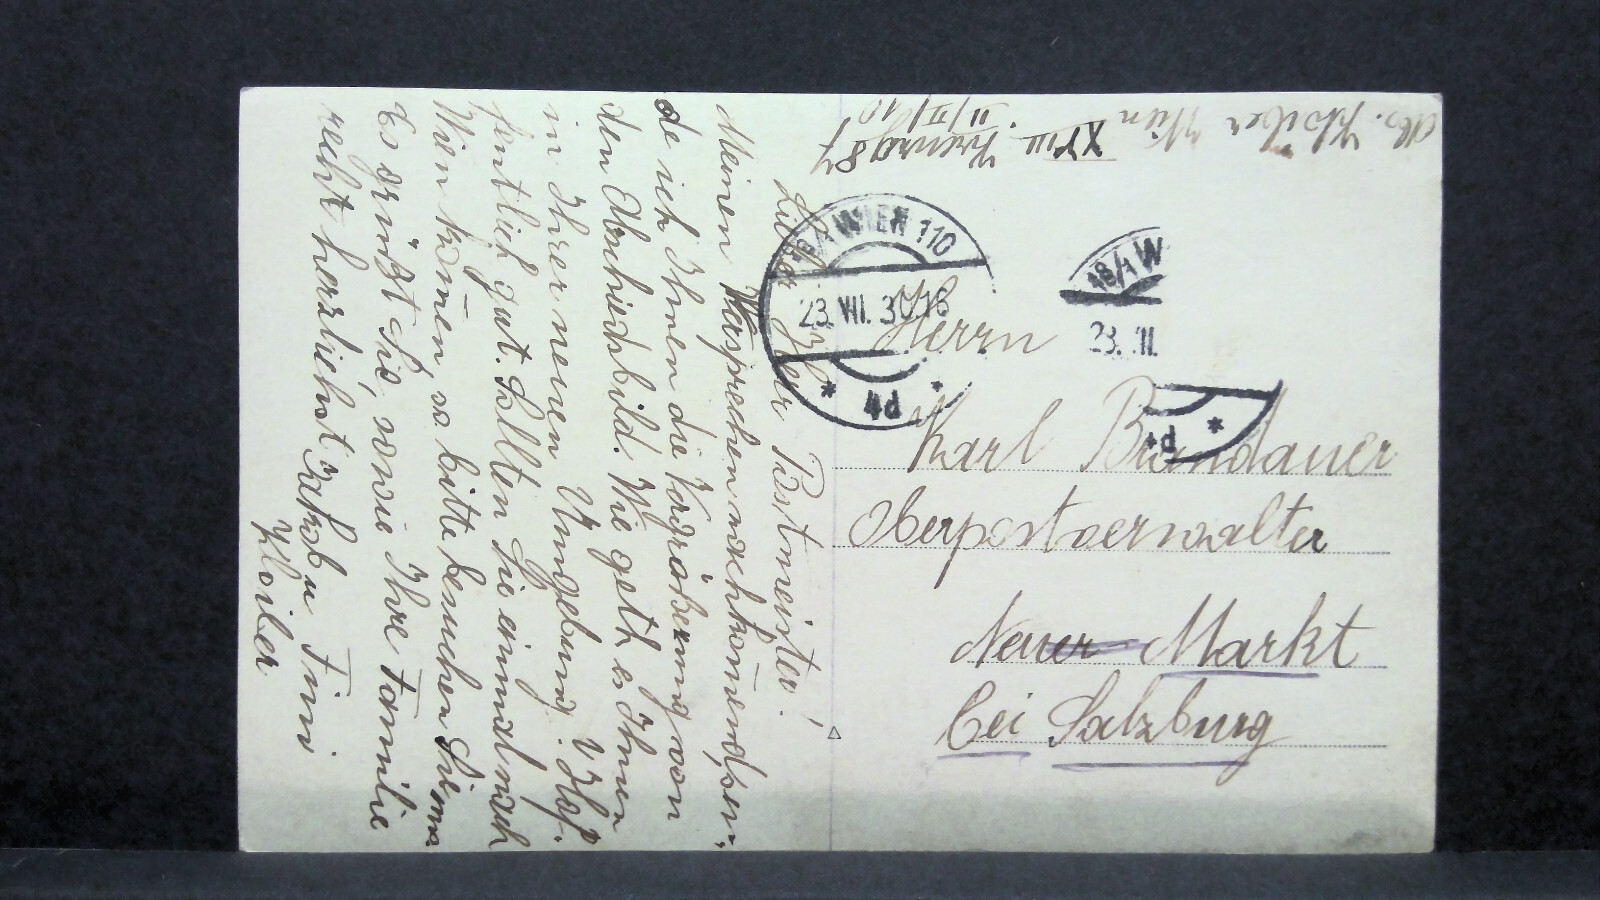 Lieber Herr Postmeister!
Meinen Versprechen nachkom̅end, sen-
de ich Ihnen die Vergrößerung von
den Abschiedsbild. Wie geth es Ihnen
in Ihrer neuen Umgebung. Hof-
fentlich gut. Sollten Sie einmal nach
Wien kom̅en, so bitte besuchen Sie uns
Es grüßt Sie, sowie Ihre Familie
recht herzlichst Jakob u Fini
Kloiber
Ab. Kloiber Wien
XVIII. 87
II/II/10
18/1 WIEN 110
23. VII. 30 18
* 4d *
18/1 W
23. VII.
d *
Herrn
Karl Brandauer
Oberpostverwalter
Neuer Markt
bei Salzburg